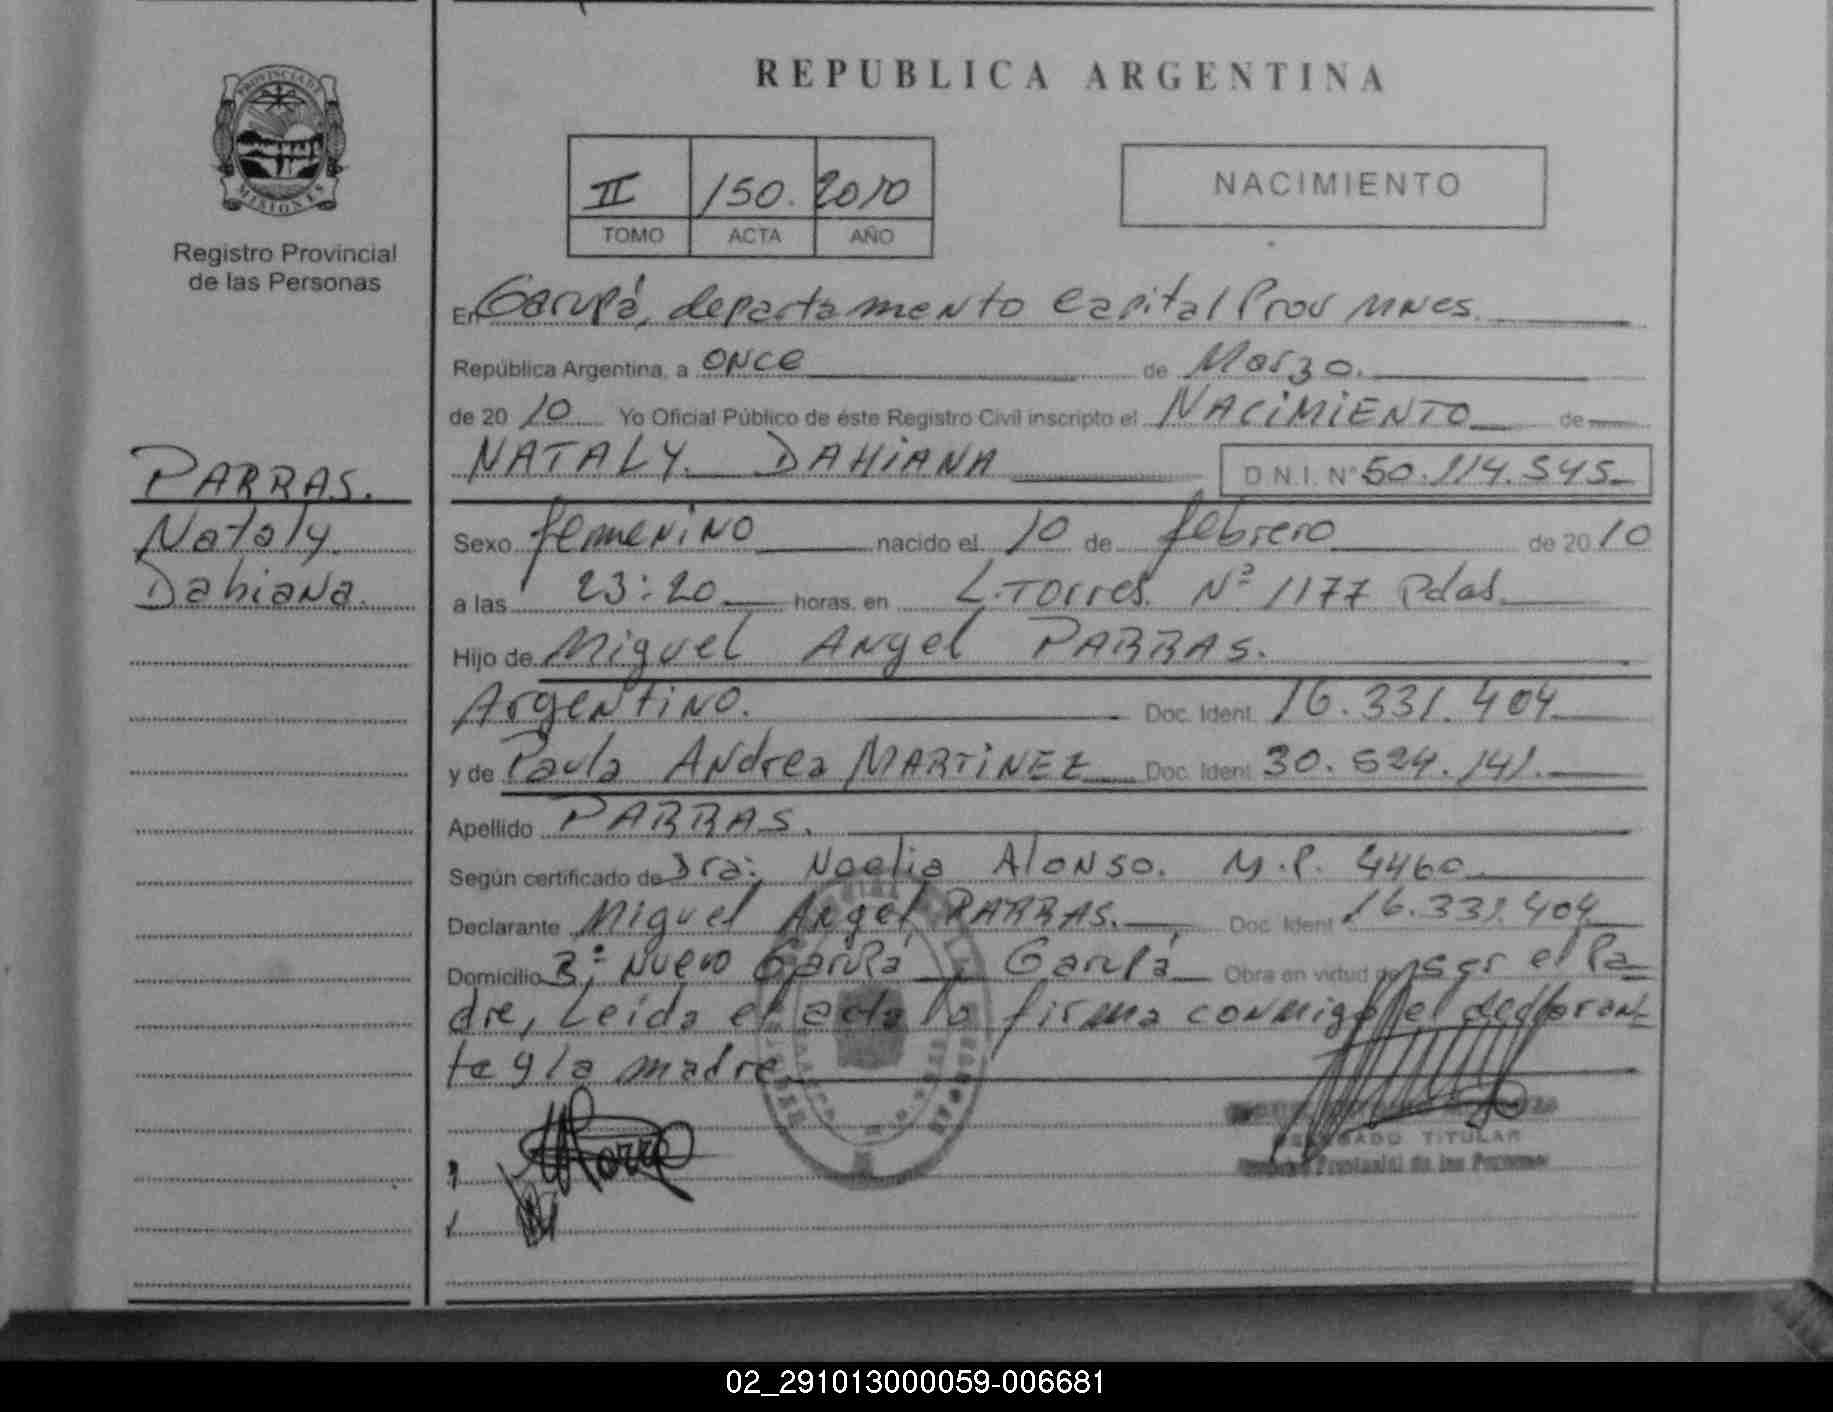 PROVINCIA DE
MISIONES
Registro Provincial
de las Personas
PARRAS.
Nataly
Dahiana.
REPUBLICA ARGENTINA
II 150. 2010
TOMO ACTA AÑO
NACIMIENTO
En Garupá, departamento Capital Prov Mnes.
República Argentina, a once de Marzo.
de 2010 Yo Oficial Público de éste Registro Civil inscripto el NACIMIENTO de
NATALY DAHIANA D.N.I. Nº 50.114.545
Sexo femenino nacido el 10 de febrero de 2010
a las 23:20 horas, en L. Torres Nº 1177 Pdas.
Hijo de Miguel Angel PARRAS.
Argentino. Doc. Ident. 16.331.404
y de Paula Andrea MARTINEZ Doc. Ident. 30.524.141.
Apellido PARRAS.
Según certificado de Dra: Noelia Alonso. M.P. 4460
Declarante Miguel Angel PARRAS. Doc. Ident 16.331.404
Domicilio Bº: Nuevo Garupá, Garupá Obra en virtud de ser el Pa-
dre, Leída el acta la firma conmigo el declaran-
te y la madre
DELEGADO TITULAR
Registro Provincial de las Personas
02_291013000059-006681